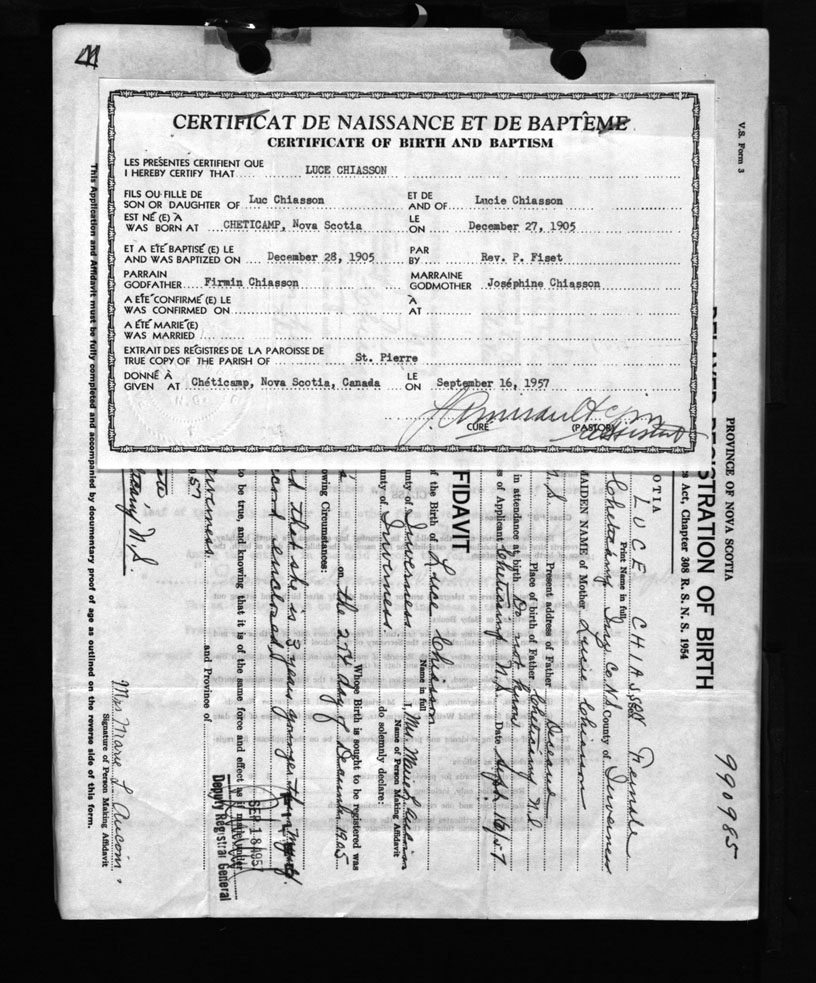 CERTIFICAT DE NAISSANCE ET DE BAPTÊME
CERTIFICATE OF BIRTH AND BAPTISM
LES PRÉSENTES CERTIFIENT QUE
I HEREBY CERTIFY THAT LUCE CHIASSON
FILS OU FILLE DE ET DE
SON OR DAUGHTER OF Luc Chiasson AND OF Lucie Chiasson
EST NÉ (E) À LE
WAS BORN AT CHETICAMP, Nova Scotia ON December 27, 1905
ET A ÉTÉ BAPTISÉ (E) LE PAR
AND WAS BAPTIZED ON December 28, 1905 BY Rev. P. Fiset
PARRAIN MARRAINE
GODFATHER Firmin Chiasson GODMOTHER Joséphine Chiasson
A ÉTÉ CONFIRMÉ (E) LE À
WAS CONFIRMED ON AT
A ÉTÉ MARIÉ (E)
WAS MARRIED
EXTRAIT DES REGISTRES DE LA PAROISSE DE
TRUE COPY OF THE PARISH OF St. Pierre
DONNÉ À LE
GIVEN AT Chéticamp, Nova Scotia, Canada ON September 16, 1957
CURÉ (PASTOR)
assistant
V.S. Form 3
PROVINCE OF NOVA SCOTIA
REGISTRATION OF BIRTH
Act, Chapter 308 R. S. N. S. 1954
990985
OTIA
LUCE CHIASSON Female
Print Name in full
Cheticamp Inv. Co. N.S. County of Inverness
MAIDEN NAME of Mother Lucie Chiasson
N.S. Present address of Father Deceased
Place of birth of Father Cheticamp N.S.
in attendance at birth Do not know
s of Applicant Cheticamp N.S. Date Sept. 16/57
FIDAVIT
I, Mrs. Marie L. Aucoin
Name of Person Making Affidavit
unty of Inverness do solemnly declare:
f the Birth of Luce Chiasson
Name in full
unty of Inverness
Whose Birth is sought to be registered was
on the 27 day of December 1905
owing Circumstances:
d that she is 3 years younger than myself.
record enclosed
to be true and knowing that it is of the same force and effect as if made under
and Province of
Inverness
57
SEP 18 1957
Deputy Registrar General
Mrs Marie L. Aucoin
Signature of Person Making Affidavit
This Application and Affidavit must be fully completed and accompanied by documentary proof of age as outlined on the reverse side of this form.